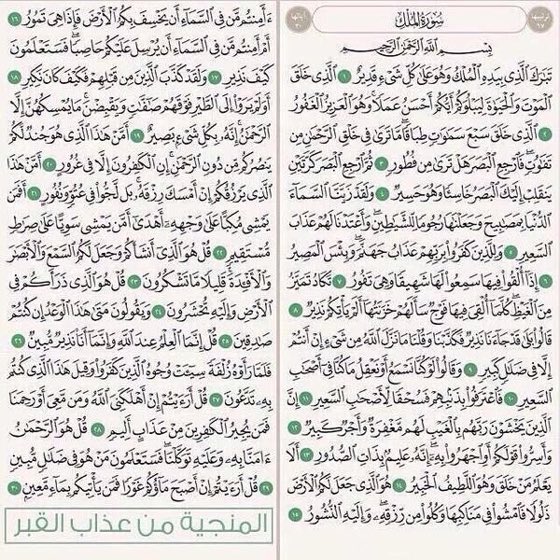 ترتيبها ٦٧
سُورَةُ المُلْكِ
آياتها ٣٠
بِسْمِ اللَّهِ الرَّحْمَنِ الرَّحِيمِ
تَبَٰرَكَ ٱلَّذِى بِيَدِهِ ٱلْمُلْكُ وَهُوَ عَلَىٰ كُلِّ شَىْءٍ قَدِيرٌ ١ ٱلَّذِى خَلَقَ
ٱلْمَوْتَ وَٱلْحَيَوٰةَ لِيَبْلُوَكُمْ أَيُّكُمْ أَحْسَنُ عَمَلًا وَهُوَ ٱلْعَزِيزُ ٱلْغَفُورُ
٢ ٱلَّذِى خَلَقَ سَبْعَ سَمَٰوَٰتٍ طِبَاقًا مَّا تَرَىٰ فِى خَلْقِ ٱلرَّحْمَٰنِ مِن
تَفَٰوُتٍ فَٱرْجِعِ ٱلْبَصَرَ هَلْ تَرَىٰ مِن فُطُورٍ ٣ ثُمَّ ٱرْجِعِ ٱلْبَصَرَ كَرَّتَيْنِ
يَنقَلِبْ إِلَيْكَ ٱلْبَصَرُ خَاسِئًا وَهُوَ حَسِيرٌ ٤ وَلَقَدْ زَيَّنَّا ٱلسَّمَآءَ
ٱلدُّنْيَا بِمَصَٰبِيحَ وَجَعَلْنَٰهَا رُجُومًا لِّلشَّيَٰطِينِ وَأَعْتَدْنَا لَهُمْ عَذَابَ
ٱلسَّعِيرِ ٥ وَلِلَّذِينَ كَفَرُوا۟ بِرَبِّهِمْ عَذَابُ جَهَنَّمَ وَبِئْسَ ٱلْمَصِيرُ
٦ إِذَآ أُلْقُوا۟ فِيهَا سَمِعُوا۟ لَهَا شَهِيقًا وَهِىَ تَفُورُ ٧ تَكَادُ تَمَيَّزُ
مِنَ ٱلْغَيْظِ كُلَّمَآ أُلْقِىَ فِيهَا فَوْجٌ سَأَلَهُمْ خَزَنَتُهَآ أَلَمْ يَأْتِكُمْ نَذِيرٌ ٨
قَالُوا۟ بَلَىٰ قَدْ جَآءَنَا نَذِيرٌ فَكَذَّبْنَا وَقُلْنَا مَا نَزَّلَ ٱللَّهُ مِن شَىْءٍ إِنْ أَنتُمْ
إِلَّا فِى ضَلَٰلٍ كَبِيرٍ ٩ وَقَالُوا۟ لَوْ كُنَّا نَسْمَعُ أَوْ نَعْقِلُ مَا كُنَّا فِىٓ أَصْحَٰبِ
ٱلسَّعِيرِ ١٠ فَٱعْتَرَفُوا۟ بِذَنۢبِهِمْ فَسُحْقًا لِّأَصْحَٰبِ ٱلسَّعِيرِ ١١ إِنَّ
ٱلَّذِينَ يَخْشَوْنَ رَبَّهُم بِٱلْغَيْبِ لَهُم مَّغْفِرَةٌ وَأَجْرٌ كَبِيرٌ ١٢
وَأَسِرُّوا۟ قَوْلَكُمْ أَوِ ٱجْهَرُوا۟ بِهِۦٓ إِنَّهُۥ عَلِيمٌۢ بِذَاتِ ٱلصُّدُورِ ١٣ أَلَا
يَعْلَمُ مَنْ خَلَقَ وَهُوَ ٱللَّطِيفُ ٱلْخَبِيرُ ١٤ هُوَ ٱلَّذِى جَعَلَ لَكُمُ ٱلْأَرْضَ
ذَلُولًا فَٱمْشُوا۟ فِى مَنَاكِبِهَا وَكُلُوا۟ مِن رِّزْقِهِۦ وَإِلَيْهِ ٱلنُّشُورُ ١٥
ءَأَمِنتُم مَّن فِى ٱلسَّمَآءِ أَن يَخْسِفَ بِكُمُ ٱلْأَرْضَ فَإِذَا هِىَ تَمُورُ ١٦
أَمْ أَمِنتُم مَّن فِى ٱلسَّمَآءِ أَن يُرْسِلَ عَلَيْكُمْ حَاصِبًا فَسَتَعْلَمُونَ
كَيْفَ نَذِيرِ ١٧ وَلَقَدْ كَذَّبَ ٱلَّذِينَ مِن قَبْلِهِمْ فَكَيْفَ كَانَ نَكِيرِ ١٨
أَوَلَمْ يَرَوْا۟ إِلَى ٱلطَّيْرِ فَوْقَهُمْ صَٰٓفَّٰتٍ وَيَقْبِضْنَ مَا يُمْسِكُهُنَّ إِلَّا
ٱلرَّحْمَٰنُ إِنَّهُۥ بِكُلِّ شَىْءٍۭ بَصِيرٌ ١٩ أَمَّنْ هَٰذَا ٱلَّذِى هُوَ جُندٌ لَّكُمْ
يَنصُرُكُم مِّن دُونِ ٱلرَّحْمَٰنِ إِنِ ٱلْكَٰفِرُونَ إِلَّا فِى غُرُورٍ ٢٠ أَمَّنْ هَٰذَا
ٱلَّذِى يَرْزُقُكُمْ إِنْ أَمْسَكَ رِزْقَهُۥ بَل لَّجُّوا۟ فِى عُتُوٍّ وَنُفُورٍ ٢١ أَفَمَن
يَمْشِى مُكِبًّا عَلَىٰ وَجْهِهِۦٓ أَهْدَىٰٓ أَمَّن يَمْشِى سَوِيًّا عَلَىٰ صِرَٰطٍ
مُّسْتَقِيمٍ ٢٢ قُلْ هُوَ ٱلَّذِىٓ أَنشَأَكُمْ وَجَعَلَ لَكُمُ ٱلسَّمْعَ وَٱلْأَبْصَٰرَ
وَٱلْأَفْـِٔدَةَ قَلِيلًا مَّا تَشْكُرُونَ ٢٣ قُلْ هُوَ ٱلَّذِى ذَرَأَكُمْ فِى
ٱلْأَرْضِ وَإِلَيْهِ تُحْشَرُونَ ٢٤ وَيَقُولُونَ مَتَىٰ هَٰذَا ٱلْوَعْدُ إِن كُنتُمْ
صَٰدِقِينَ ٢٥ قُلْ إِنَّمَا ٱلْعِلْمُ عِندَ ٱللَّهِ وَإِنَّمَآ أَنَا۠ نَذِيرٌ مُّبِينٌ ٢٦
فَلَمَّا رَأَوْهُ زُلْفَةً سِيٓـَٔتْ وُجُوهُ ٱلَّذِينَ كَفَرُوا۟ وَقِيلَ هَٰذَا ٱلَّذِى كُنتُم
بِهِۦ تَدَّعُونَ ٢٧ قُلْ أَرَءَيْتُمْ إِنْ أَهْلَكَنِىَ ٱللَّهُ وَمَن مَّعِىَ أَوْ رَحِمَنَا
فَمَن يُجِيرُ ٱلْكَٰفِرِينَ مِنْ عَذَابٍ أَلِيمٍ ٢٨ قُلْ هُوَ ٱلرَّحْمَٰنُ
ءَامَنَّا بِهِۦ وَعَلَيْهِ تَوَكَّلْنَا فَسَتَعْلَمُونَ مَنْ هُوَ فِى ضَلَٰلٍ مُّبِينٍ
٢٩ قُلْ أَرَءَيْتُمْ إِنْ أَصْبَحَ مَآؤُكُمْ غَوْرًا فَمَن يَأْتِيكُم بِمَآءٍ مَّعِينٍۭ ٣٠
المنجية من عذاب القبر